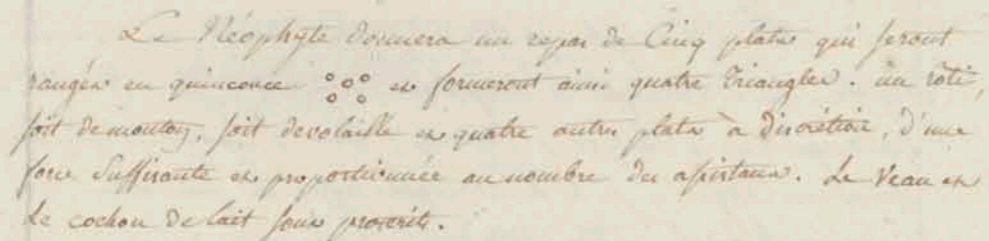 Le Néophyte donnera un repas de Cinq plats qui seront
rangés en quinconce et formeront ainsi quatre Triangles. un roti,
soit de mouton, soit de volaille et quatre autres plats à discrétion, d'une
force suffisante et proportionnée au nombre des assistans. Le Veau et
le cochon de lait sont proscrits.